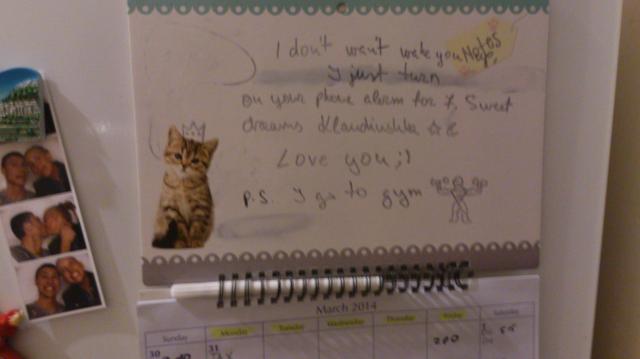 Notes
I don't want wake you
I just turn
on your phone alarm for 7, Sweet
dreams Klaudiushka
Love you ;)
P.S. I go to gym
March 2014
Sunday Monday Tuesday Wednesday Thursday Friday Saturday
30 31